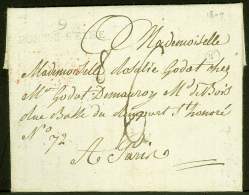 9
1809
Mademoiselle
Mademoiselle Rosalie Godot chez
Mr Godot Demauroy Md de Bois
Rue Basse du Rempart St honoré
No 72
A Paris